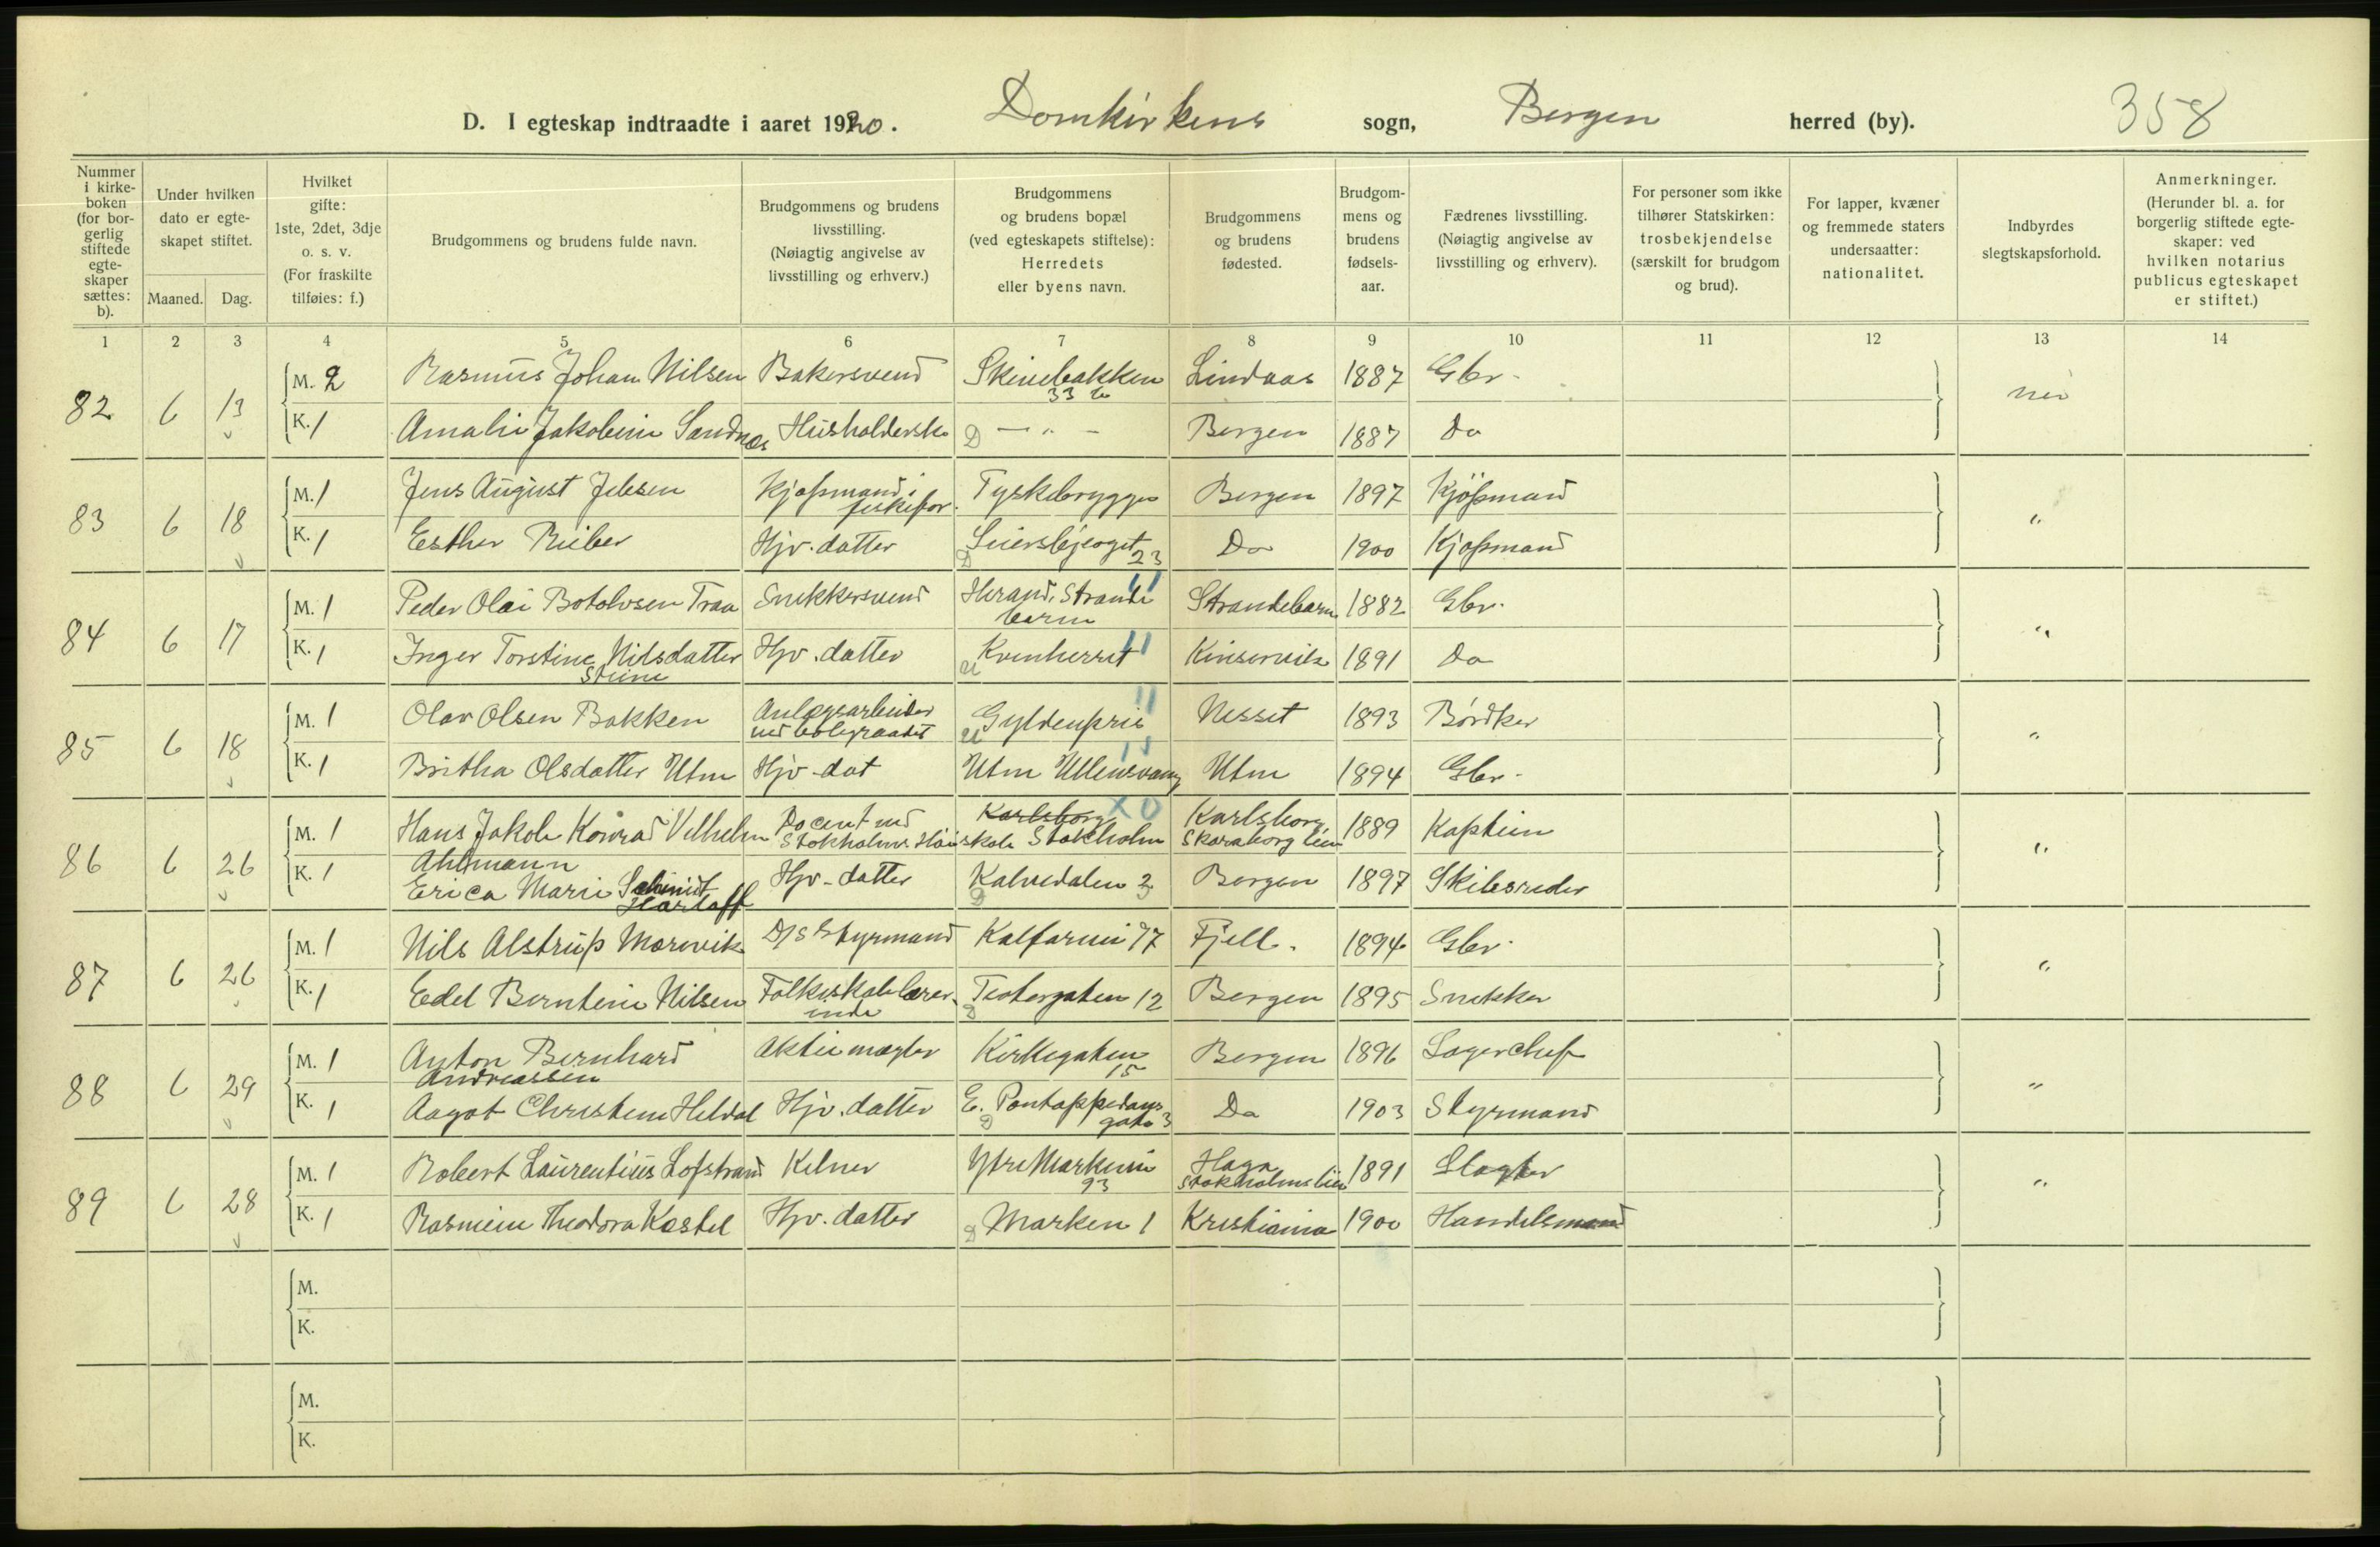 D. I egteskap indtraadte i aaret 1920. Domkirkens sogn, Bergen herred (by). 358
Nummer i kirke-boken (for bor-gerlig stiftede egte-skaper sættes: b).
Under hvilken dato er egte-skapet stiftet.
Maaned. Dag.
Hvilket gifte: 1ste, 2det, 3dje o. s. v. (For fraskilte tilføies: f.)
Brudgommens og brudens fulde navn.
Brudgommens og brudens livsstilling. (Nøiagtig angivelse av livsstilling og erhverv.)
Brudgommens og brudens bopæl (ved egteskapets stiftelse): Herredets eller byens navn.
Brudgommens og brudens fødested.
Brudgom-mens og brudens fødsels-aar.
Fædrenes livsstilling. (Nøiagtig angivelse av livsstilling og erhverv).
For personer som ikke tilhører Statskirken: trosbekjendelse (særskilt for brudgom og brud).
For lapper, kvæner og fremmede staters undersaatter: nationalitet.
Indbyrdes slegtskapsforhold.
Anmerkninger. (Herunder bl. a. for borgerlig stiftede egte-skaper: ved hvilken notarius publicus egteskapet er stiftet.)
1 2 3 4 5 6 7 8 9 10 11 12 13 14
82 6 13 M. 2 Rasmus Johan Nilsen Bakersvend Skivebakken 33 b Lindaas 1887 Gbr. nei
K. 1 Amalie Jakobine Sandnes Husholderske D — " — Bergen 1887 Do
83 6 18 M. 1 Jens August Jebsen Kjøpmand i fiskefor. Tyskebryggen Bergen 1897 Kjøpmand "
K. 1 Esther Rieber Hjv. datter D 23 Do 1900 Kjøpmand
84 6 17 M. 1 Peder Olai Botolvsen Traa Snekkersvend Herand, Strandebarm Strandebarm 1882 Gbr. "
K. 1 Inger Torstine Nilsdatter Hjv. datter U Kvinherret Kinservik 1891 Do
85 6 18 M. 1 Olav Olsen Bakken Anlægsarbeider ved boligraadet U Gyldenpris Nesset 1893 Bødker "
K. 1 Britha Olsdatter Utne Hjv-dat Utne Ullensvang Utne 1894 Gbr.
86 6 26 M. 1 Hans Jakob Konrad Vilhelm Ahlmann Docent ved Stokholms Høiskole Karlsborg Stokholm Karlsborg Skaraborg län 1889 Kaptein "
K. 1 Erica Marie Schmidt Harloff Hjv-datter D Kalvedalen 2 Bergen 1897 Skibsreder
87 6 26 M. 1 Nils Alstrup Morvik D/S Styrmand Kalfarvei 77 Fjell. 1894 Gbr. "
K. 1 Edel Berntine Nilsen Folkeskolelærerinde D Teatergaten 12 Bergen 1895 Snekker
88 6 29 M. 1 Anton Bernhard Andreassen Aktiemægler Kirkegaten 15 Bergen 1896 Lagerchef "
K. 1 Aagot Christine Heldal Hjv. datter D E. Pontoppidans gate 3 Do 1903 Styrmand
89 6 28 M. 1 Robert Laurentius Lofstrand Kelner Ytre Markevei 93 Haga Stokholms län 1891 Slagter "
K. 1 Rasmine Theodora Kastel Hjv. datter D Marken 1 Kristiania 1900 Handelsmand
M.
K.
M.
K.